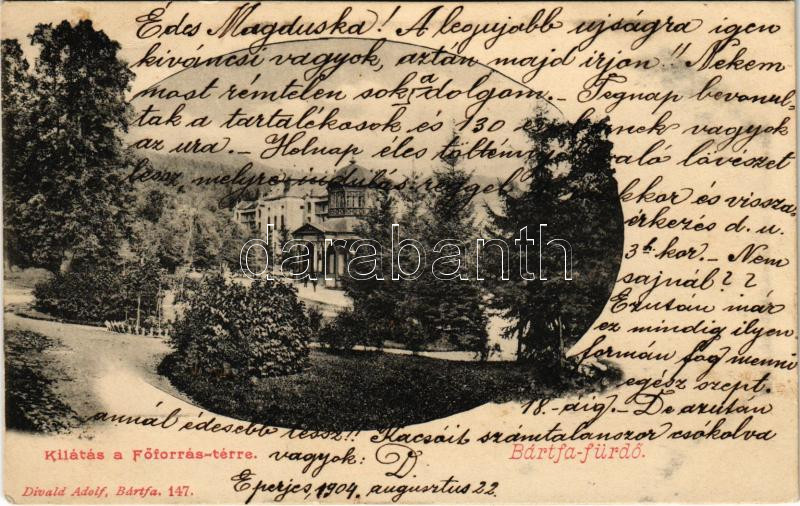 Édes Magduska! A legujabb ujságra igen
kiváncsi vagyok, aztán majd irjon!! Nekem
most rémtelen sok a dolgom.- Tegnap bevonul-
tak a tartalékosok és 130 nek vagyok
az ura.- Holnap éles töltén való lövészet
lesz, melyre indulás reggel kor és vissza-
érkezés d. u.
3 h. kor.- Nem
sajnál??
Ezután már
ez mindig ilyen
formán fog menni
egész szept.
18.-áig.- De azután
annál édesebb lessz!! Kacsóit számtalanszor csókolva
vagyok: D.
Eperjes, 1904. augusztus 22.
darabanth
Kilátás a Főforrás-térre.
Bártfa-fürdő.
Divald Adolf, Bártfa. 147.